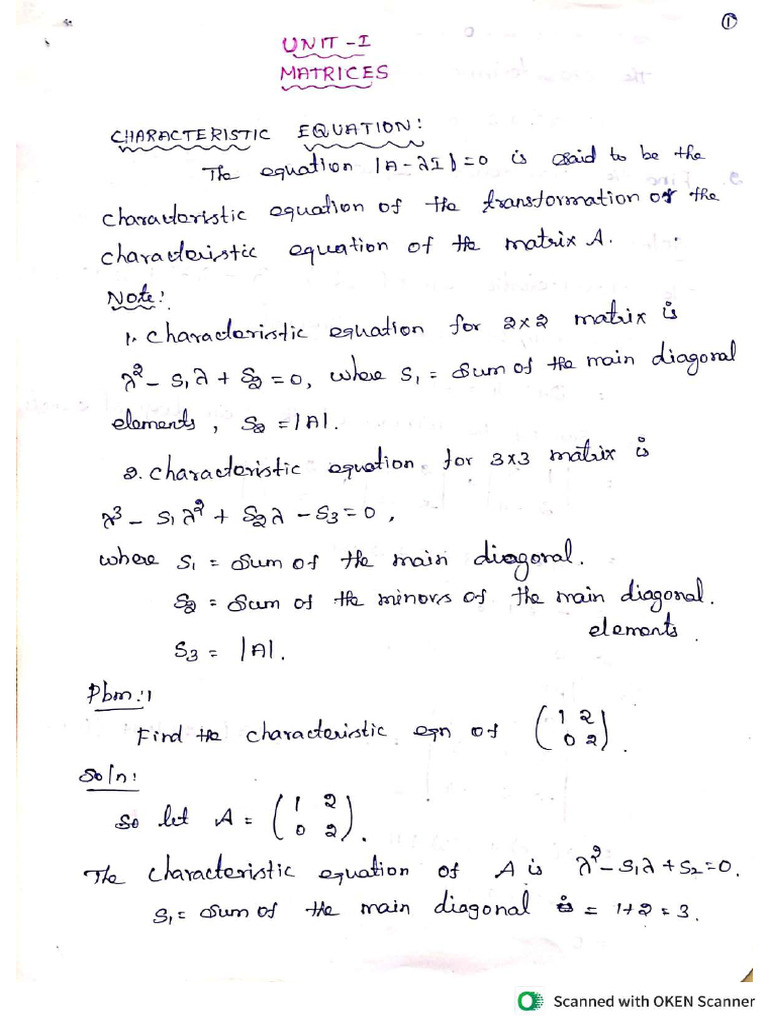 ①
UNIT - I
MATRICES
CHARACTERISTIC EQUATION:
The equation |A - λI| = 0 is said to be the
characteristic equation of the transformation or the
characteristic equation of the matrix A.
Note:
1. Characteristic equation for 2×2 matrix is
λ² - S₁λ + S₂ = 0, where S₁ = Sum of the main diagonal
elements, S₂ = |A|.
2. Characteristic equation for 3×3 matrix is
λ³ - S₁λ² + S₂λ - S₃ = 0,
where S₁ = Sum of the main diagonal.
S₂ = Sum of the minors of the main diagonal.
elements.
S₃ = |A|.
Pbm:1
Find the characteristic eqn of (1 2
0 2).
Soln:
So let A = (1 2
0 2).
The characteristic equation of A is λ² - S₁λ + S₂ = 0.
S₁ = Sum of the main diagonal is = 1+2 = 3.
Scanned with OKEN Scanner